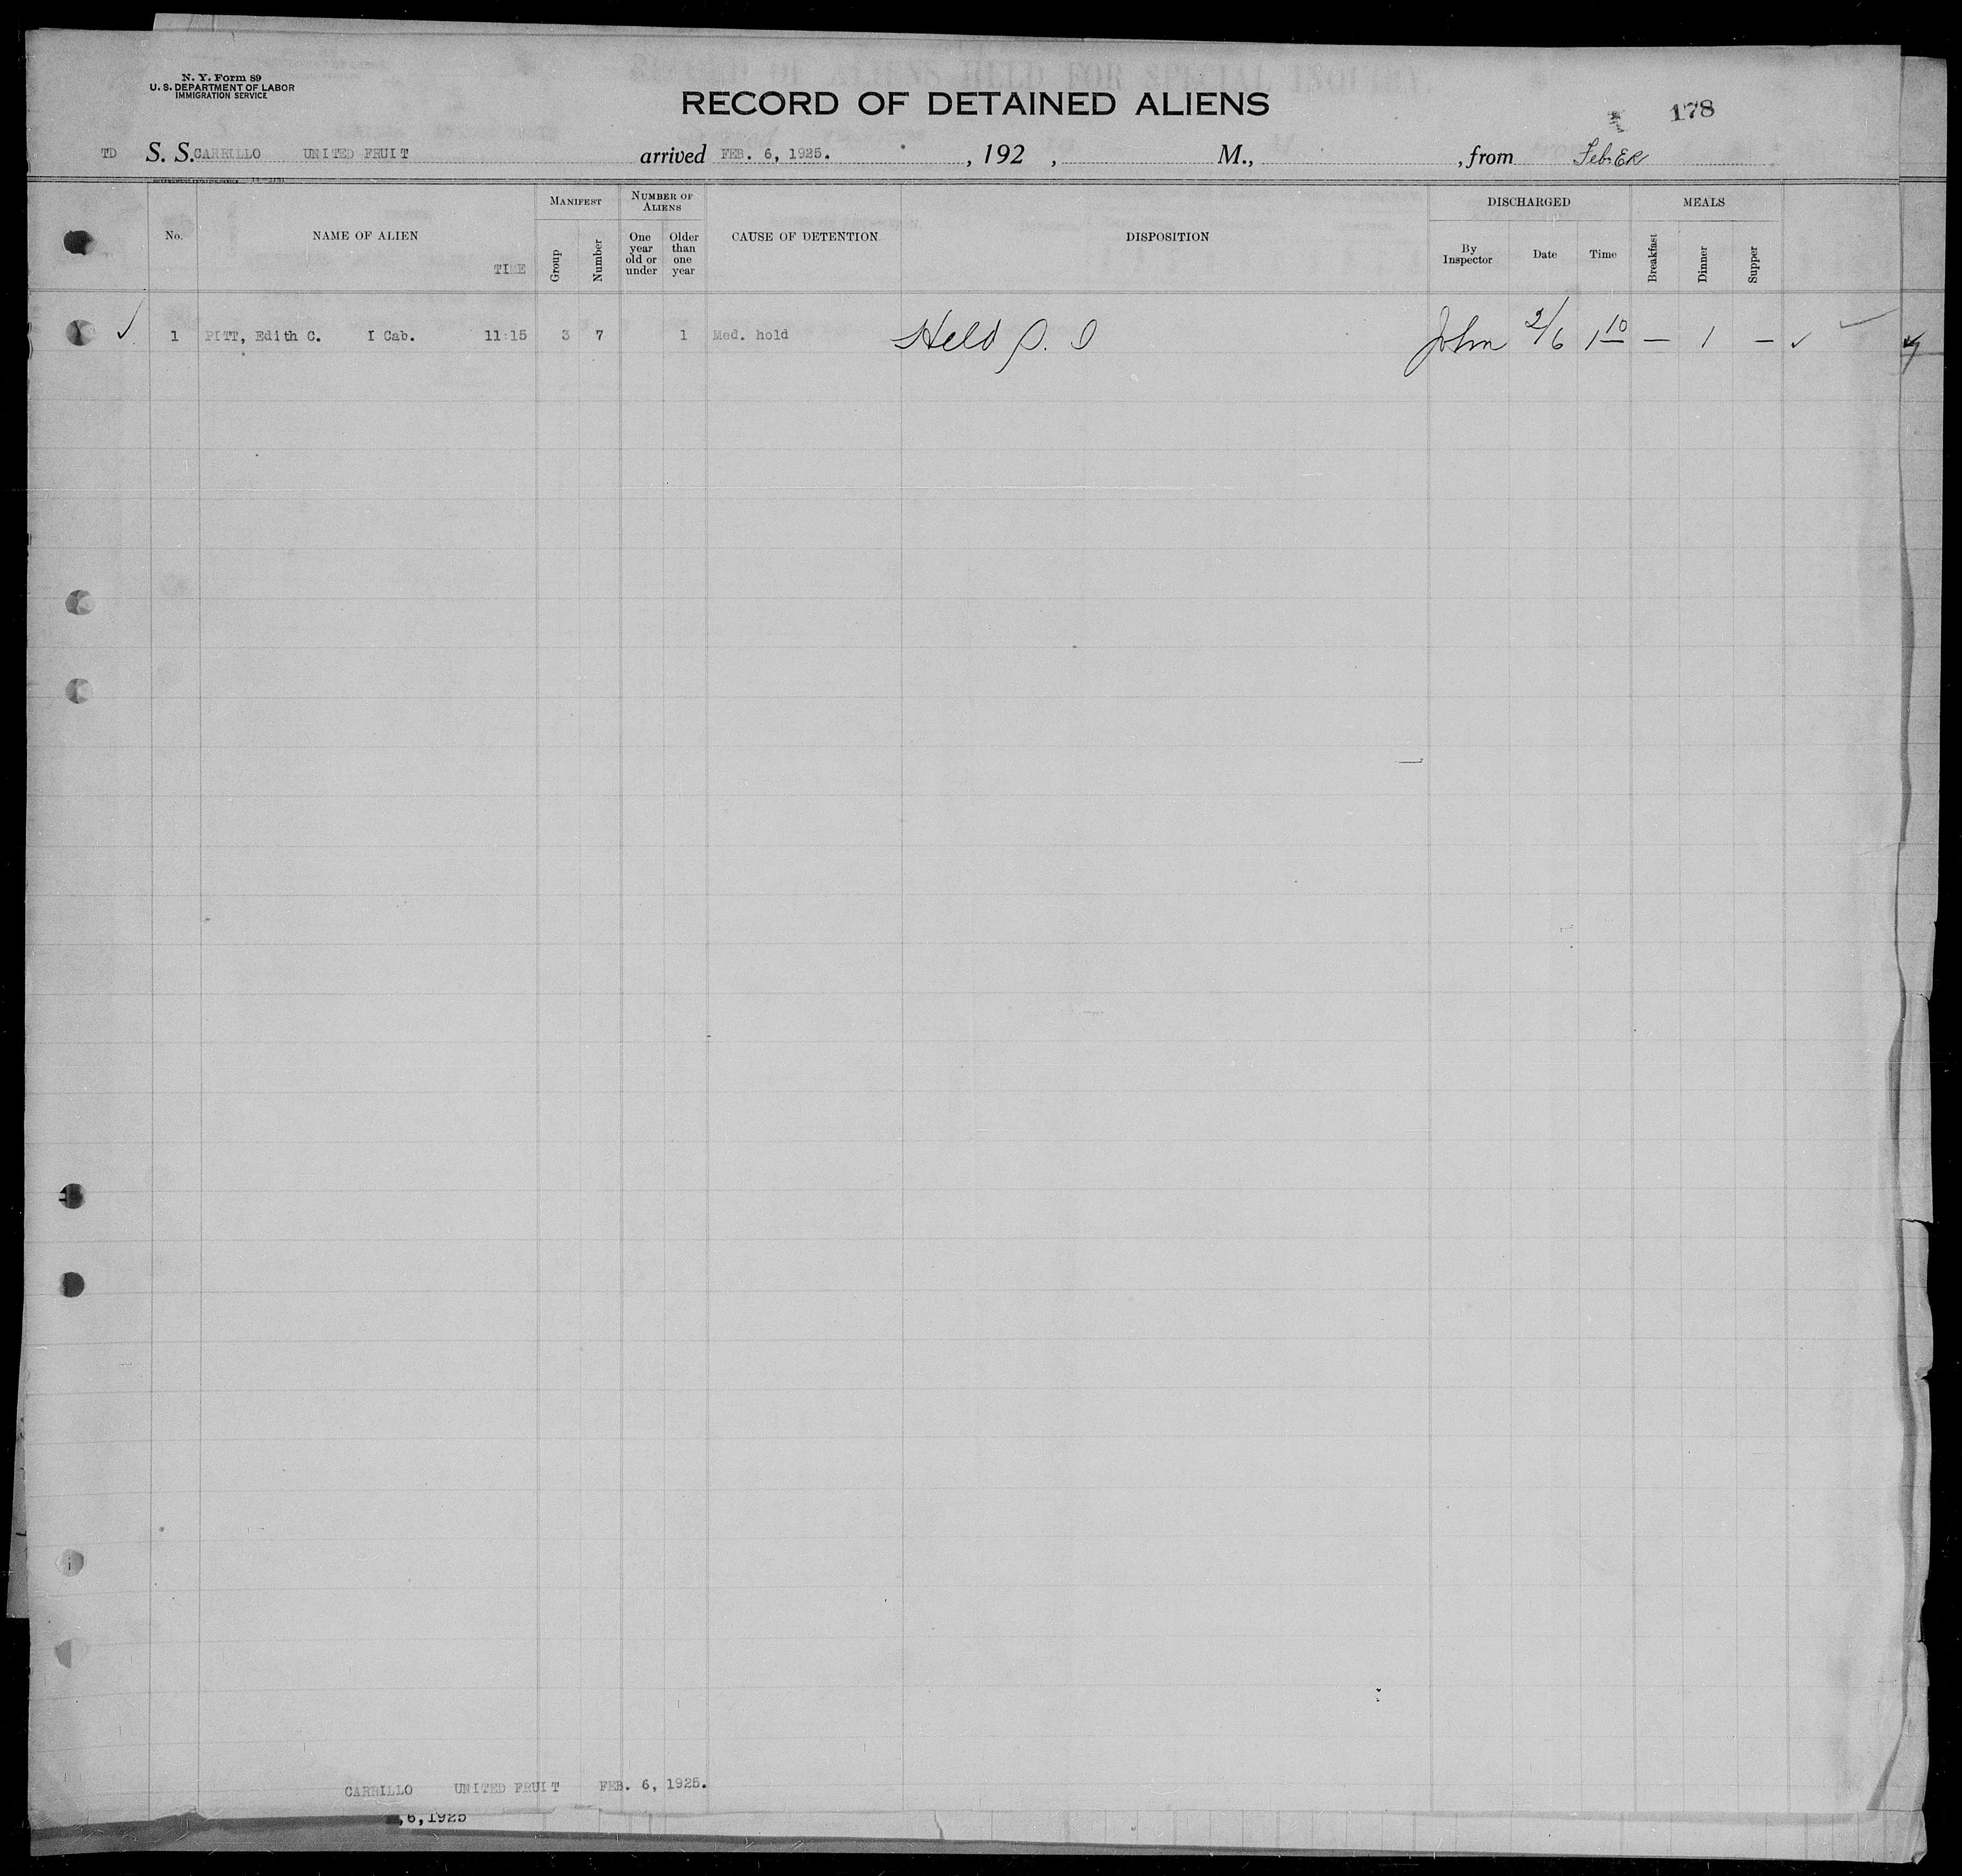 N. Y. Form 89
U. S. DEPARTMENT OF LABOR
IMMIGRATION SERVICE
RECORD OF ALIENS HELD FOR SPECIAL INQUIRY.
RECORD OF DETAINED ALIENS
178
TD S. S. CARRILLO UNITED FRUIT arrived FEB. 6, 1925. , 192 , M., , from
No. NAME OF ALIEN TIME
MANIFEST Group Number
NUMBER OF ALIENS
One year old or under
Older than one year
CAUSE OF DETENTION
DISPOSITION
DISCHARGED By Inspector Date Time
MEALS Breakfast Dinner Supper
✓ 1 PITT, Edith C. I Cab. 11:15 3 7 1 Med. hold Held S. I John 2/6 1 10 — 1 — ✓
CARRILLO UNITED FRUIT FEB. 6, 1925.
,6,1925